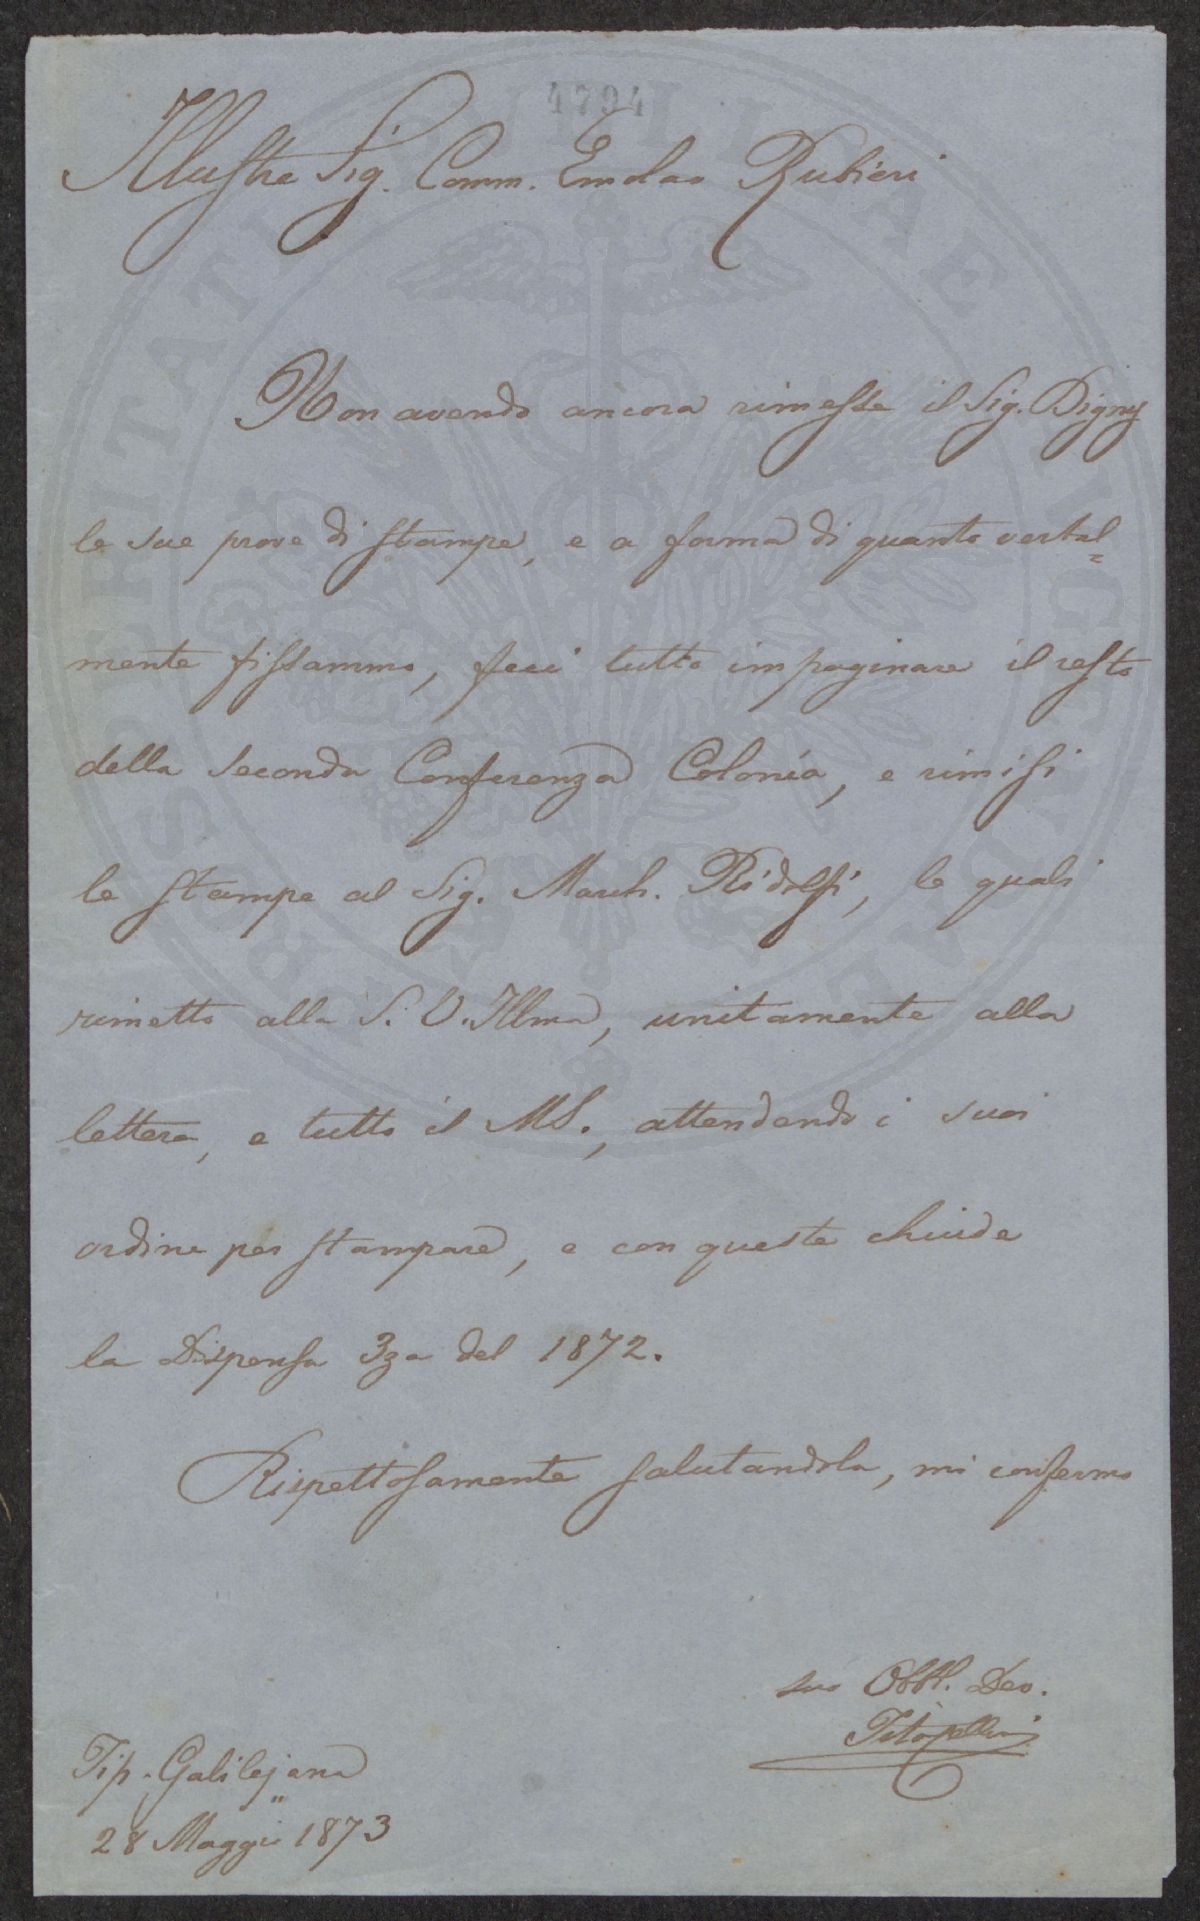 4794
Illustre Sig. Comm. Ermolao Rubieri
Non avendo ancora rimesse il Sig. Digny
le sue prove di stampe, e a forma di quanto verbal=
mente fissammo, feci tutto impaginare il resto
della seconda Conferenza Colonia, e rimisi
le stampe al Sig. March. Ridolfi, le quali
rimetto alla S. V. Illma, unitamente alla
lettera, e tutto il MS., attendendo i suoi
ordine per stampare, e con queste chiude
la Dispensa 3za del 1872.
Rispettosamente salutandola, mi confermo
suo Obbl. Dev.
Tip. Galilejana
28 Maggio 1873